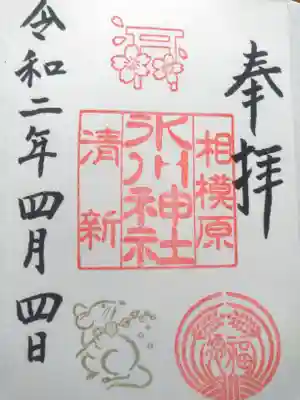 奉拝
相模原
氷川神社
清新
令和二年四月四日